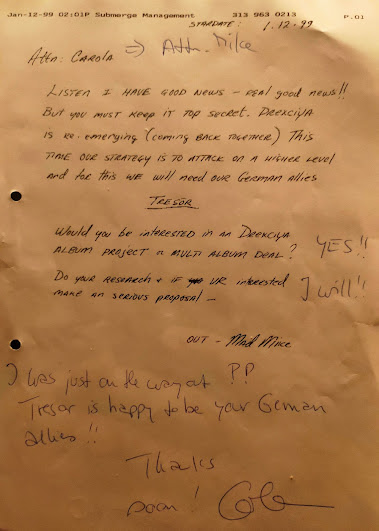 Jan-12-99 02:01P Submerge Management 313 963 0213 P.01
STARDATE: 1.12.99
Attn: CAROLA => Attn. Mike
LISTEN I HAVE GOOD NEWS - REAL good news!!
But you must keep it top secret. DREXCIYA
is re-emerging (coming BACK together) This
time our strategy is to attack on a higher level
and for this we will need our German allies
TRESOR
Would you be interested in an Drexciya
ALBUM project or multi album deal? YES!!
Do your research & if UR interested I will!!
make an serious proposal -
OUT - Mad Mike
I was just on the way out ??
Tresor is happy to be your German
allies!!
Thanks
soon!